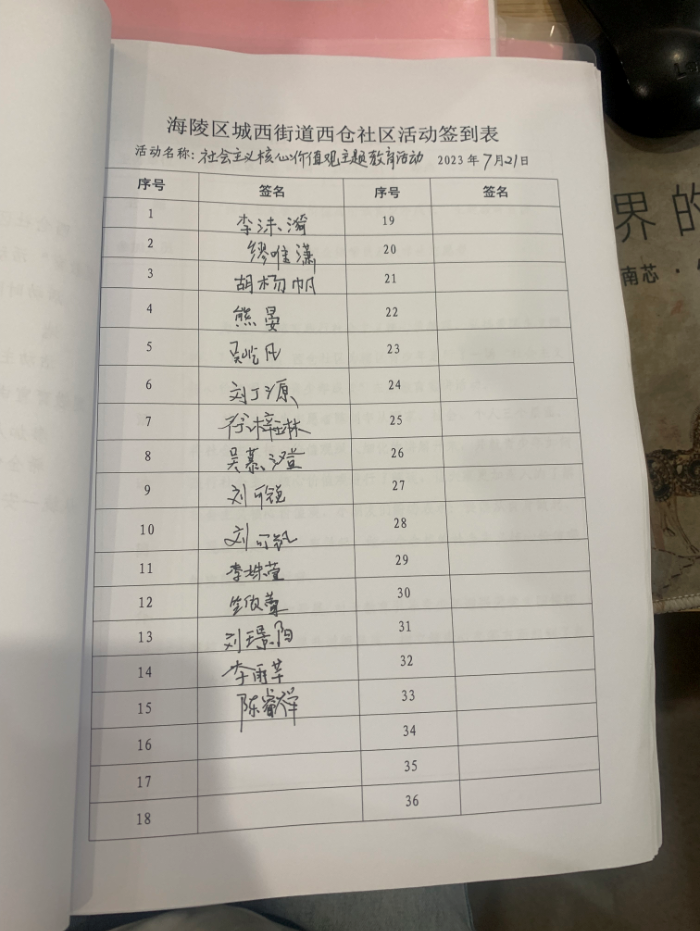 海陵区城西街道西仓社区活动签到表
活动名称：社会主义核心价值观主题教育活动 2023年7月21日
序号 签名 序号 签名
1 李沫漪 19
2 缪唯潇 20
3 胡杨帆 21
4 熊晏 22
5 吴屹凡 23
6 刘丁源 24
7 徐梓琳 25
8 吴慕澄 26
9 刘可锐 27
10 刘可凯 28
11 李姝莹 29
12 30
13 刘璟阳 31
14 李雨芊 32
15 陈睿祥 33
16 34
17 35
18 36
界的
南芯